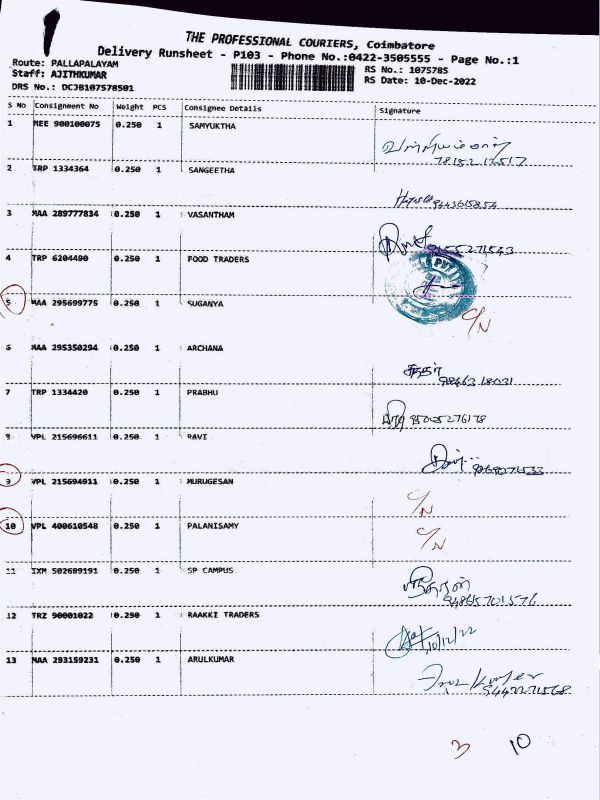 THE PROFESSIONAL COURIERS, Coimbatore
Delivery Runsheet - P103 - Phone No.:0422-3505555 - Page No.:1
Route: PALLAPALAYAM
RS No.: 1075785
Staff: AJITHKUMAR
RS Date: 10-Dec-2022
DRS No.: DCJB107578501
S No Consignment No Weight PCS Consignee Details Signature
1 MEE 900100075 0.250 1 SAMYUKTHA
2 TRP 1334364 0.250 1 SANGEETHA
3 MAA 289777834 0.250 1 VASANTHAM
4 TRP 6204490 0.250 1 FOOD TRADERS
5 MAA 295699775 0.250 1 SUGANYA C/N
6 MAA 295350294 0.250 1 ARCHANA
7 TRP 1334420 0.250 1 PRABHU
8 VPL 215696611 0.250 1 RAVI
9 VPL 215694911 0.250 1 MURUGESAN C/N
10 VPL 400610548 0.250 1 PALANISAMY C/N
11 IXM 502689191 0.250 1 SP CAMPUS
12 TRZ 90001022 0.250 1 RAAKKI TRADERS 10/12/22
13 MAA 293159231 0.250 1 ARULKUMAR
3 10